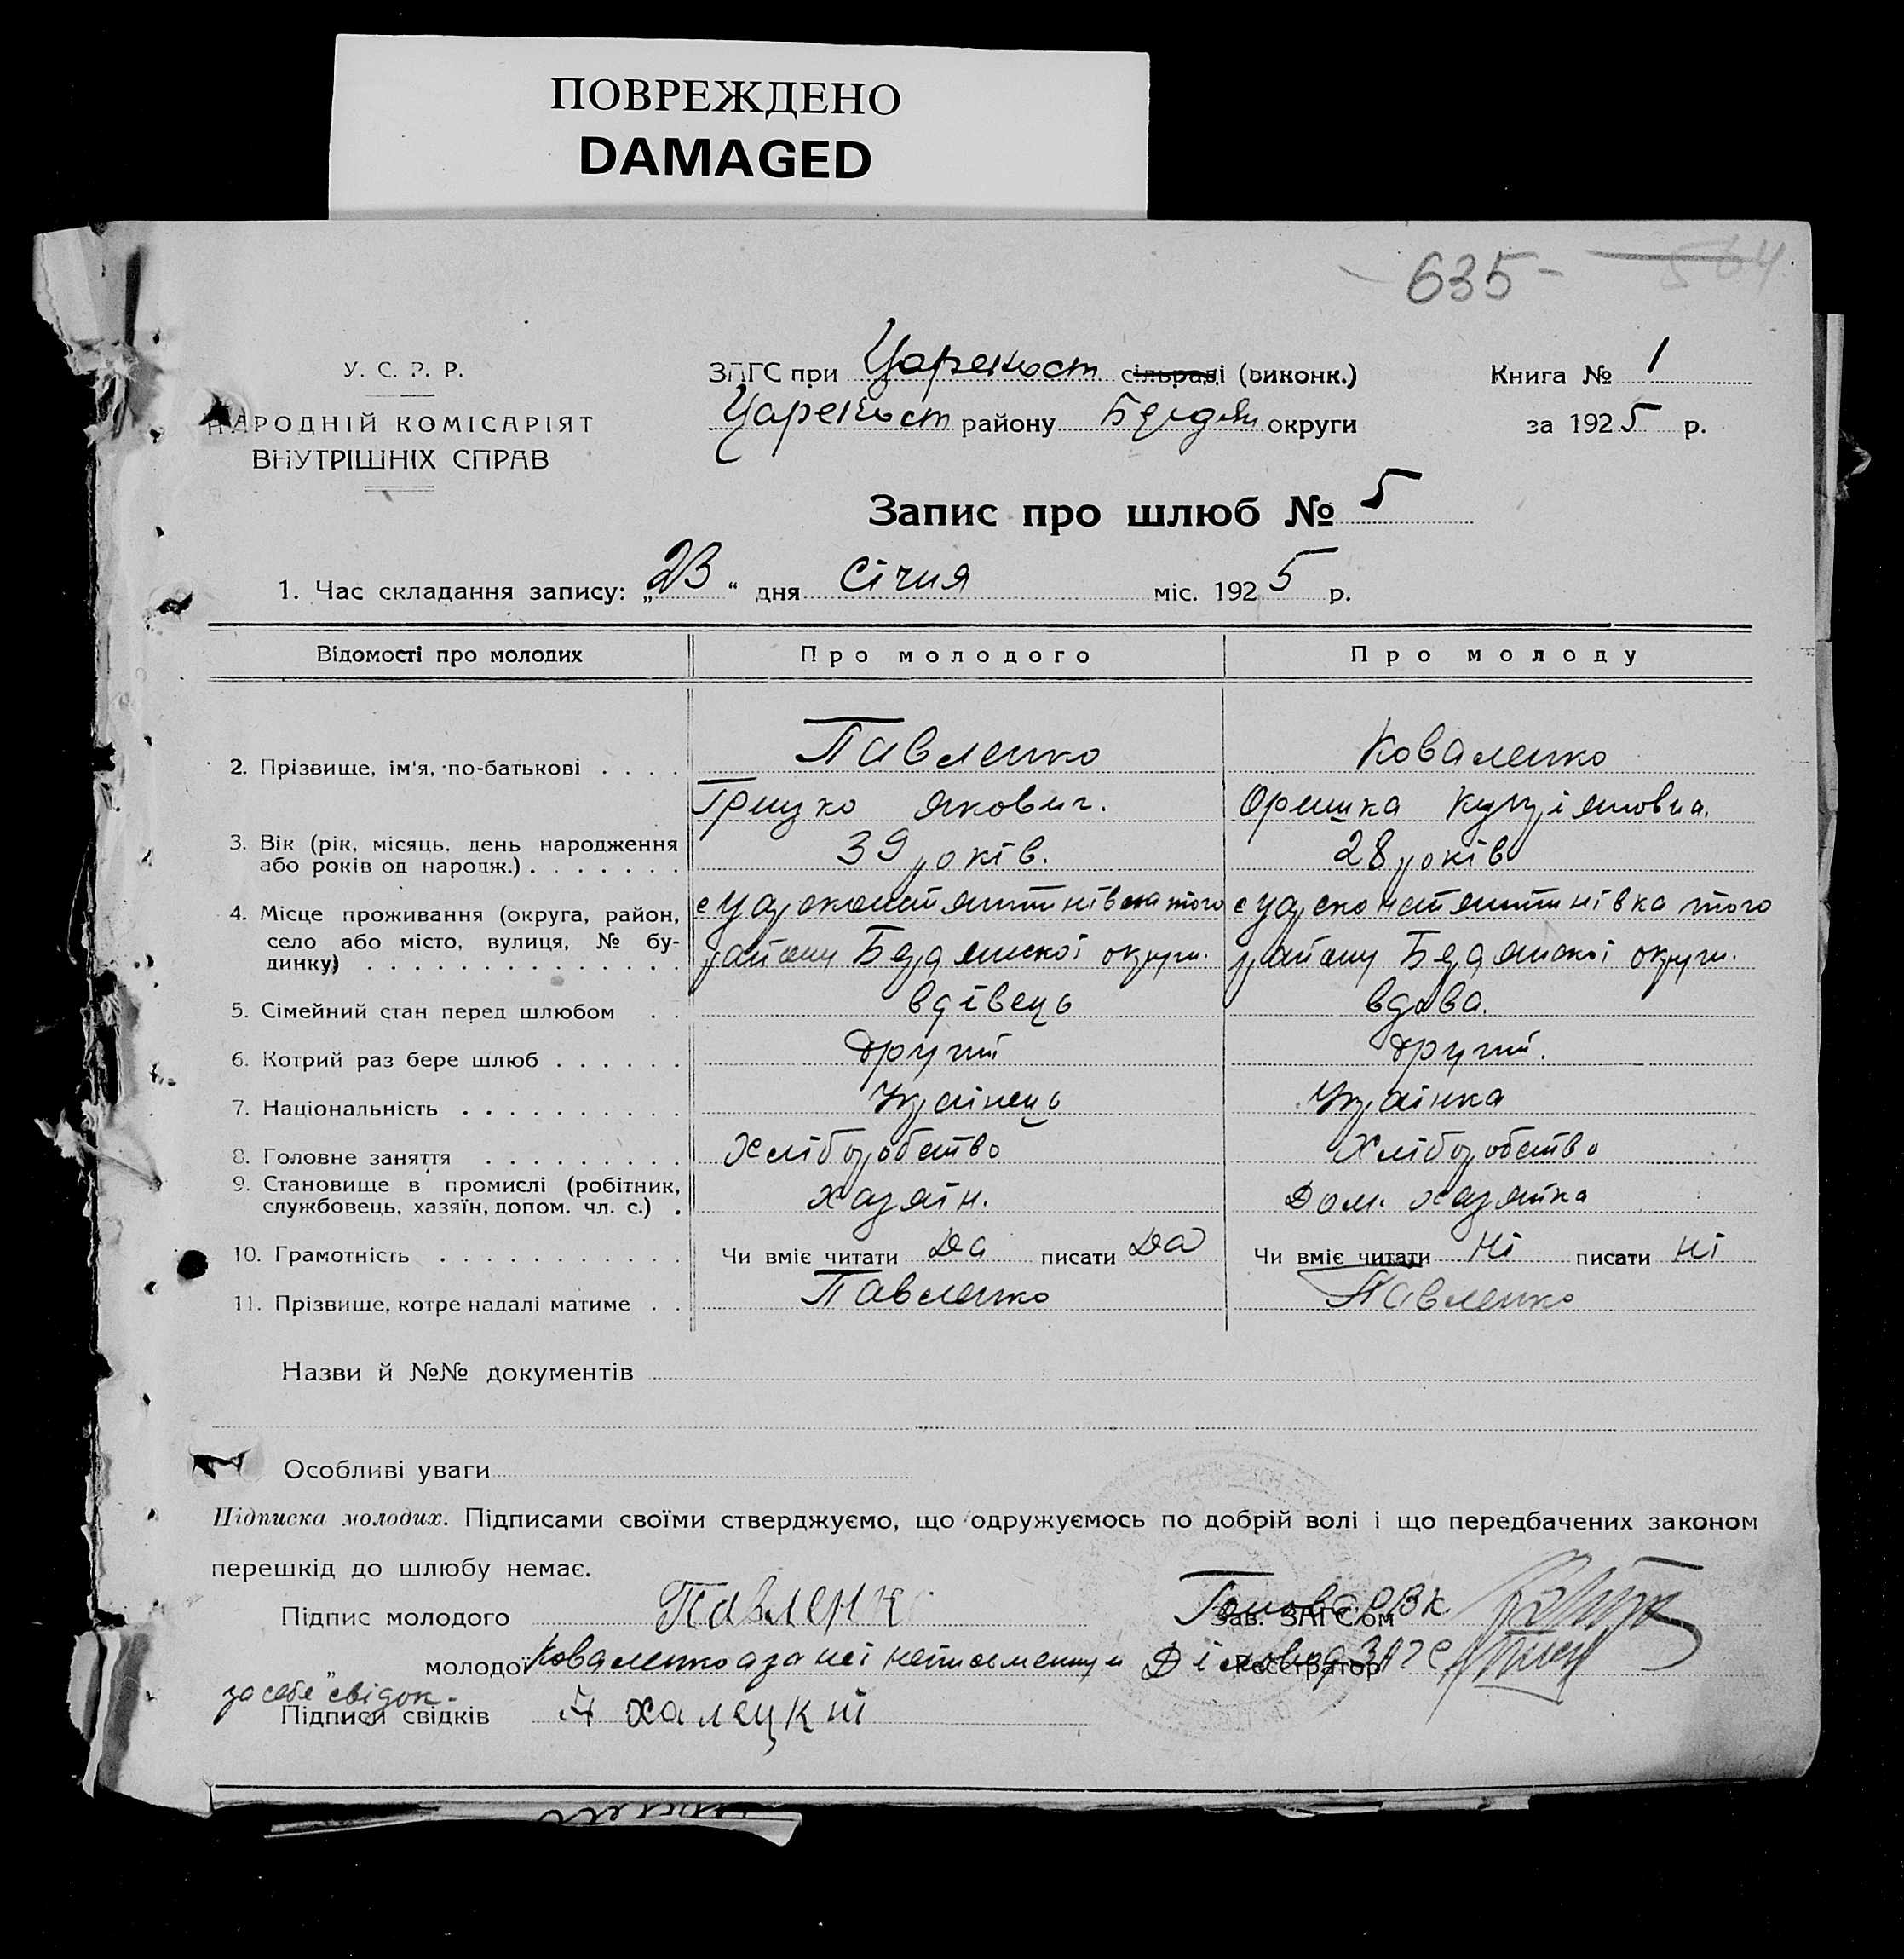 ПОВРЕЖДЕНО
DAMAGED
635-
564
У. С. Р. Р.
НАРОДНІЙ КОМІСАРІЯТ
ВНУТРІШНІХ СПРАВ
ЗАГС при Царекост сільраді (виконк.)
Царекост району Бердян округи
Книга № 1
за 1925 р.
Запис про шлюб № 5
1. Час складання запису: „23“ дня Січня міс. 1925 р.
Відомості про молодих Про молодого Про молоду
2. Прізвище, ім'я, по-батькові . . . . Павленко Коваленко
Грицко Якович. Оришка
3. Вік (рік, місяць, день народження
або років од народж.) . . . . . . . 39 років. 28 років
4. Місце проживання (округа, район, с Цареконстянтинівка того с Цареконстянтинівка того
село або місто, вулиця, № бу-
динку) . . . . . . . . . . . . . . району Бердянської округи. району Бердянської округи.
5. Сімейний стан перед шлюбом . . вдівець вдова.
6. Котрий раз бере шлюб . . . . . . другий другий.
7. Національність . . . . . . . . . . Українець Українка
8. Головне заняття . . . . . . . . . Хліборобство Хліборобство
9. Становище в промислі (робітник,
службовець, хазяїн, допом. чл. с.) . хазяїн. Дом. хазяйка
10. Грамотність . . . . . . . . . . . Чи вміє читати Да писати Да Чи вміє читати Ні писати Ні
11. Прізвище, котре надалі матиме . . Павленко Павленко
Назви й №№ документів
Особливі уваги
Підписка молодих. Підписами своїми стверджуємо, що одружуємось по добрій волі і що передбачених законом
перешкід до шлюбу немає.
Підпис молодого Павленк Голова РВК Зав. ЗАГС'ом
„ молодої Коваленко а за неї неписьменну и Діловод ЗАГС Реєстратор
за себе свідок.
Підписи свідків Халецкий